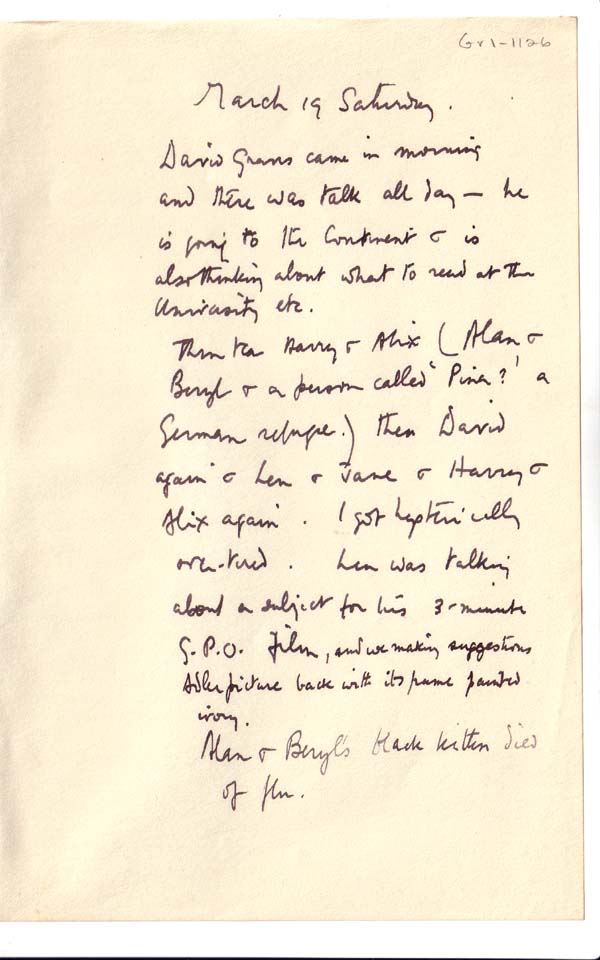 Gr1-1126
March 19 Saturday.
David Graves came in morning
and there was talk all day — he
is going to the Continent & is
also thinking about what to read at the
University etc.
Then tea Harry & Alix (Alan &
Beryl & a person called 'Pina?' a
German refugee.) then David
again & Len & Jane & Harry &
Alix again. I got hysterically
over-tired. Len was talking
about a subject for his 3-minute
G.P.O. Film, and we making suggestions
Adler picture back with its frame painted
ivory.
Alan & Beryl's black kitten died
of flu.